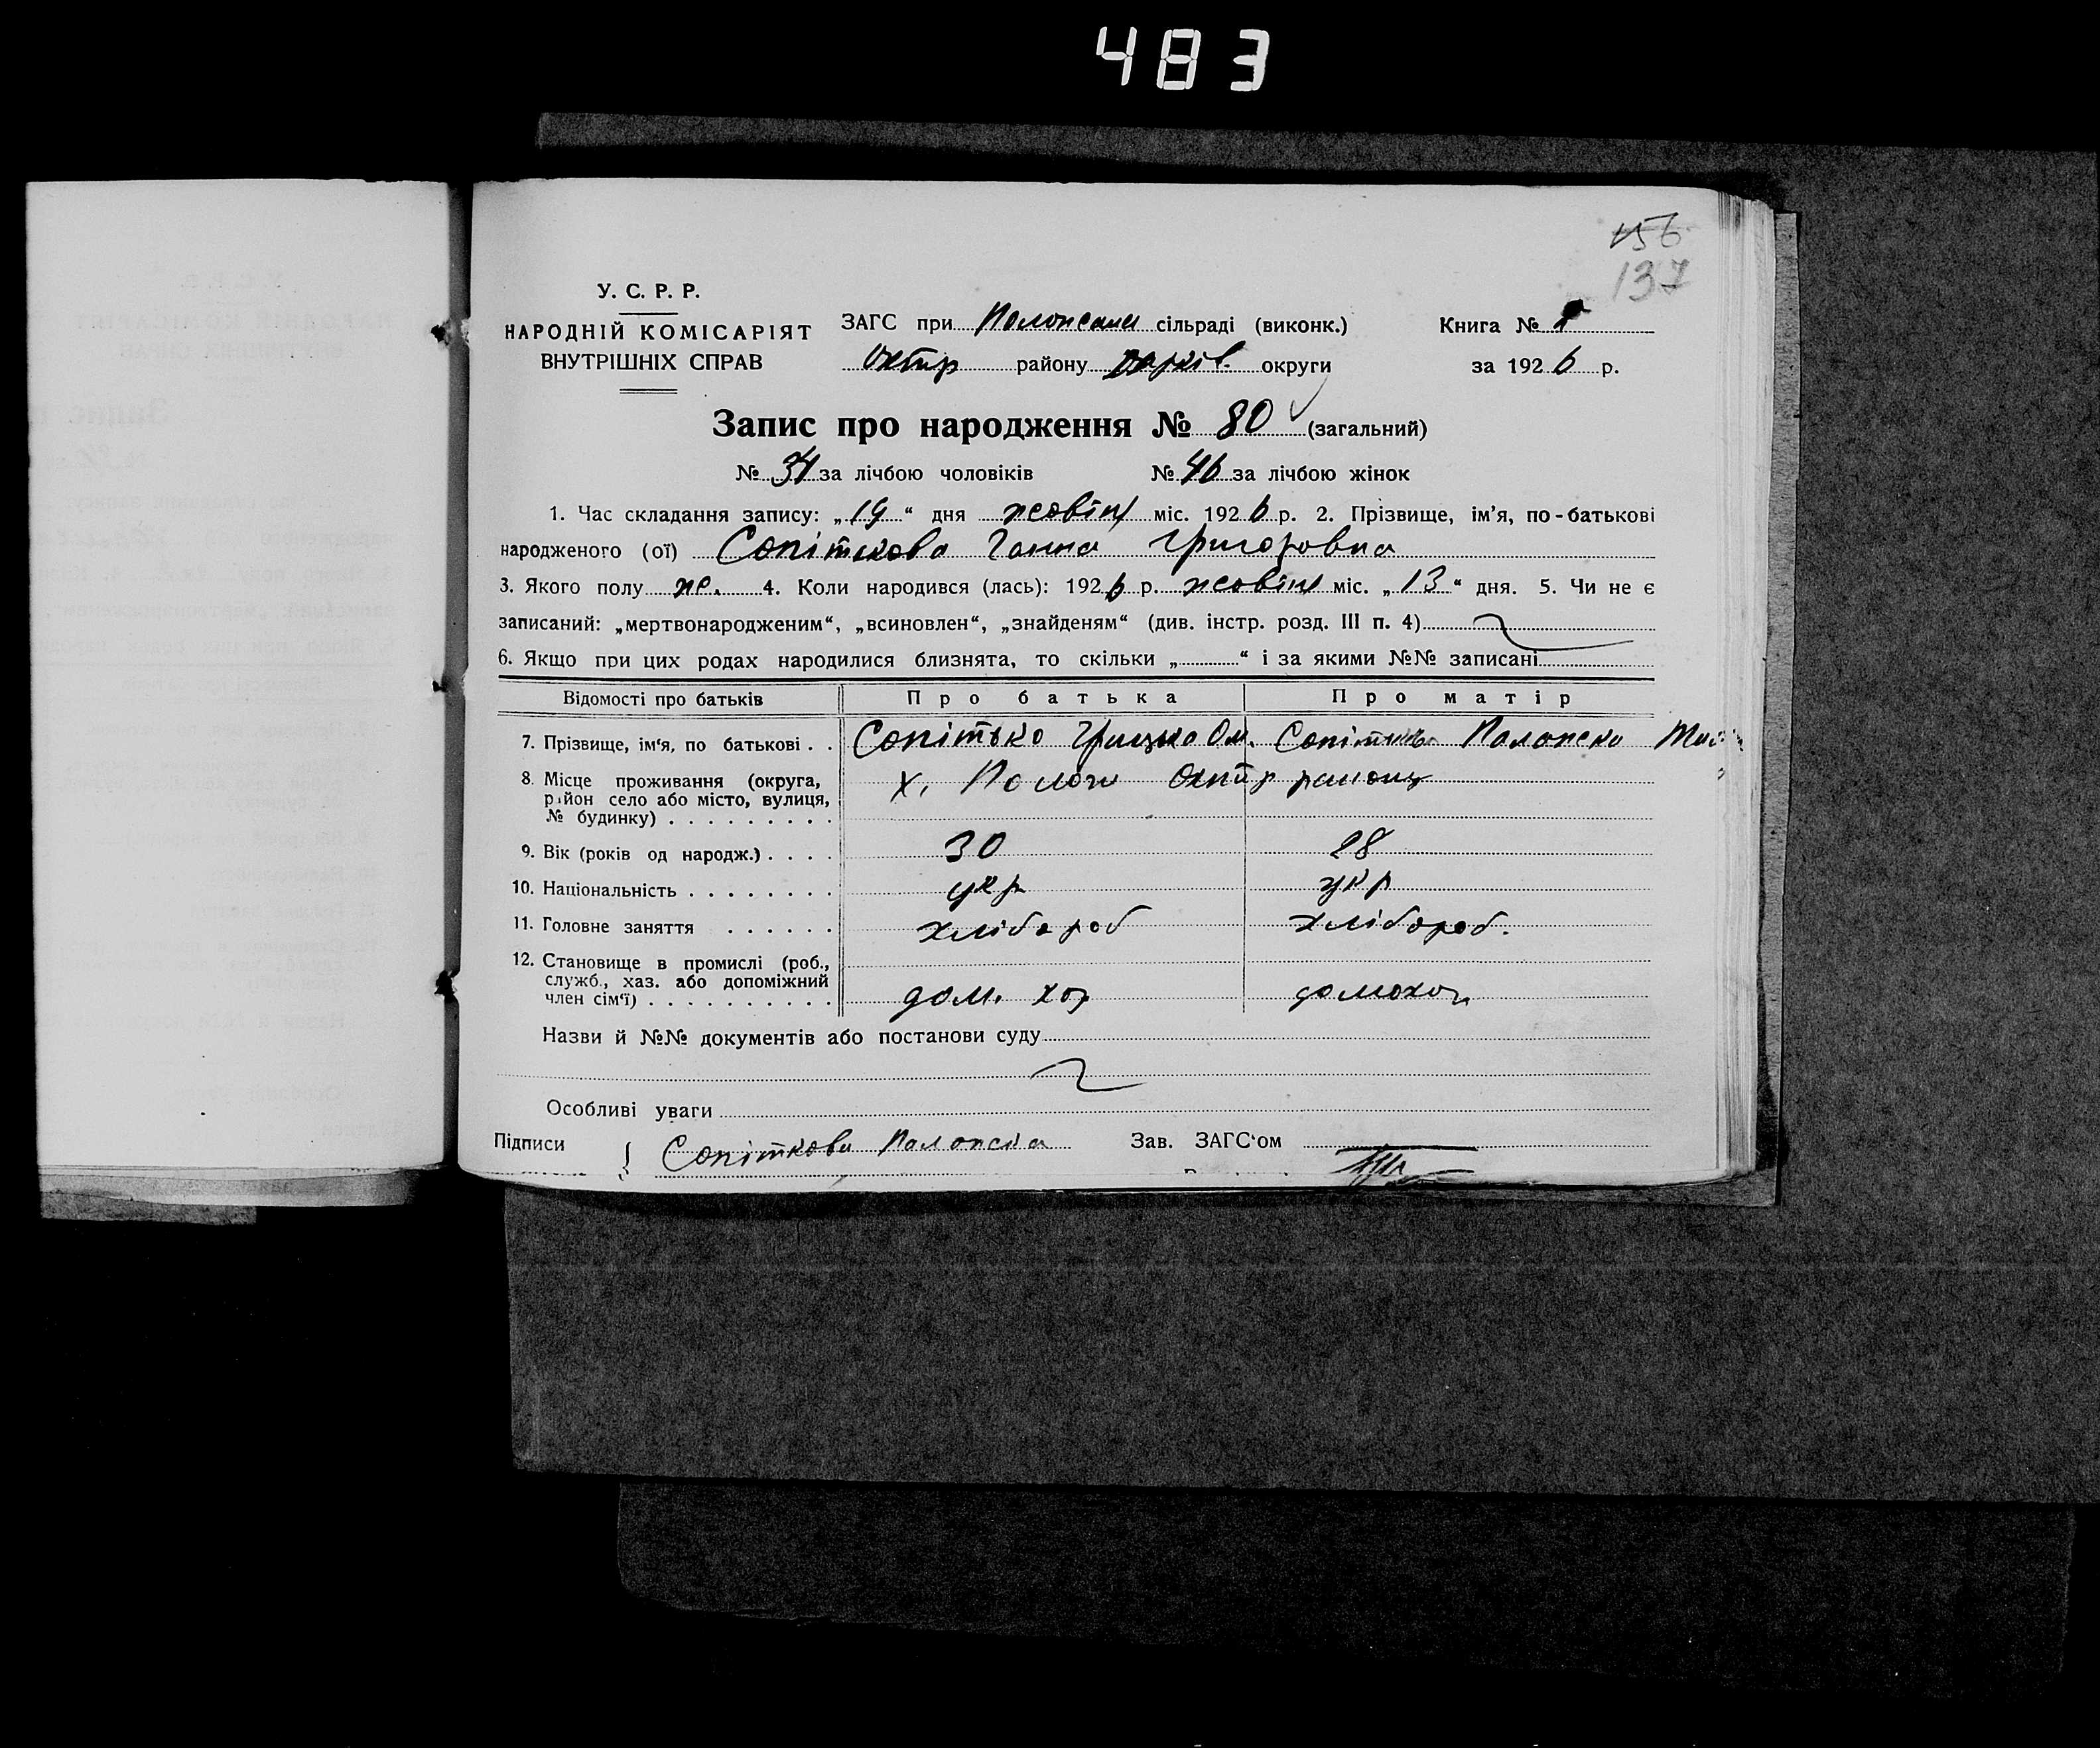 483
156
137
У. С. Р. Р.
НАРОДНІЙ КОМІСАРІЯТ
ВНУТРІШНІХ СПРАВ
ЗАГС при сільраді (виконк.)
Охтир району Харків. округи
Книга №
за 1926 р.
Запис про народження № 80 (загальний)
№ 34 за лічбою чоловіків № 46 за лічбою жінок
1. Час складання запису: „19“ дня жовтн міс. 1926 р. 2. Прізвище, ім'я, по-батькові
народженого (ої) Сопіткова Ганна Григоровна
3. Якого полу же. 4. Коли народився (лась): 1926 р. жовтн міс. „13“ дня. 5. Чи не є
записаний: „мертвонародженим“, „всиновлен“, „знайденям“ (див. інстр. розд. III п. 4)
6. Якщо при цих родах народилися близнята, то скільки „ “ і за якими №№ записані
Відомості про батьків Про батька Про матір
7. Прізвище, ім'я, по батькові . . Сопітько Грицько Ом.
8. Місце проживання (округа, х. Пологи Охтир району
район село або місто, вулиця,
№ будинку) . . . . . . . . .
9. Вік (років од народж.) . . . . 30 28
10. Національність . . . . . . . . укр укр
11. Головне заняття . . . . . . хлібороб хлібороб.
12. Становище в промислі (роб.,
служб., хаз. або допоміжний
член сім'ї) . . . . . . . . . . дом. хоз домохоз
Назви й №№ документів або постанови суду
Особливі уваги
Підписи { Сопіткова Зав. ЗАГС'ом